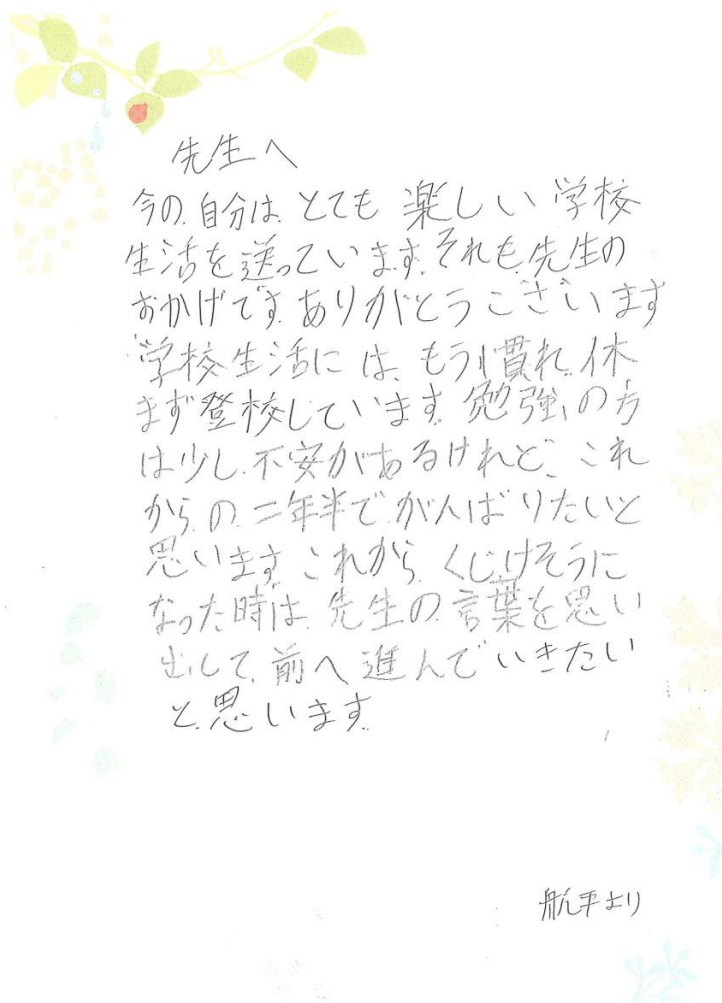 先生へ
今の自分は、とても楽しい学校
生活を送っています。それも先生の
おかげです。ありがとうございます
学校生活には、もう慣れ、休
まず登校しています。勉強の方
は少し不安があるけれど、これ
からの二年半でがんばりたいと
思います。これから、くじけそうに
なった時は、先生の言葉を思い
出して、前へ進んでいきたい
と思います。
航平より